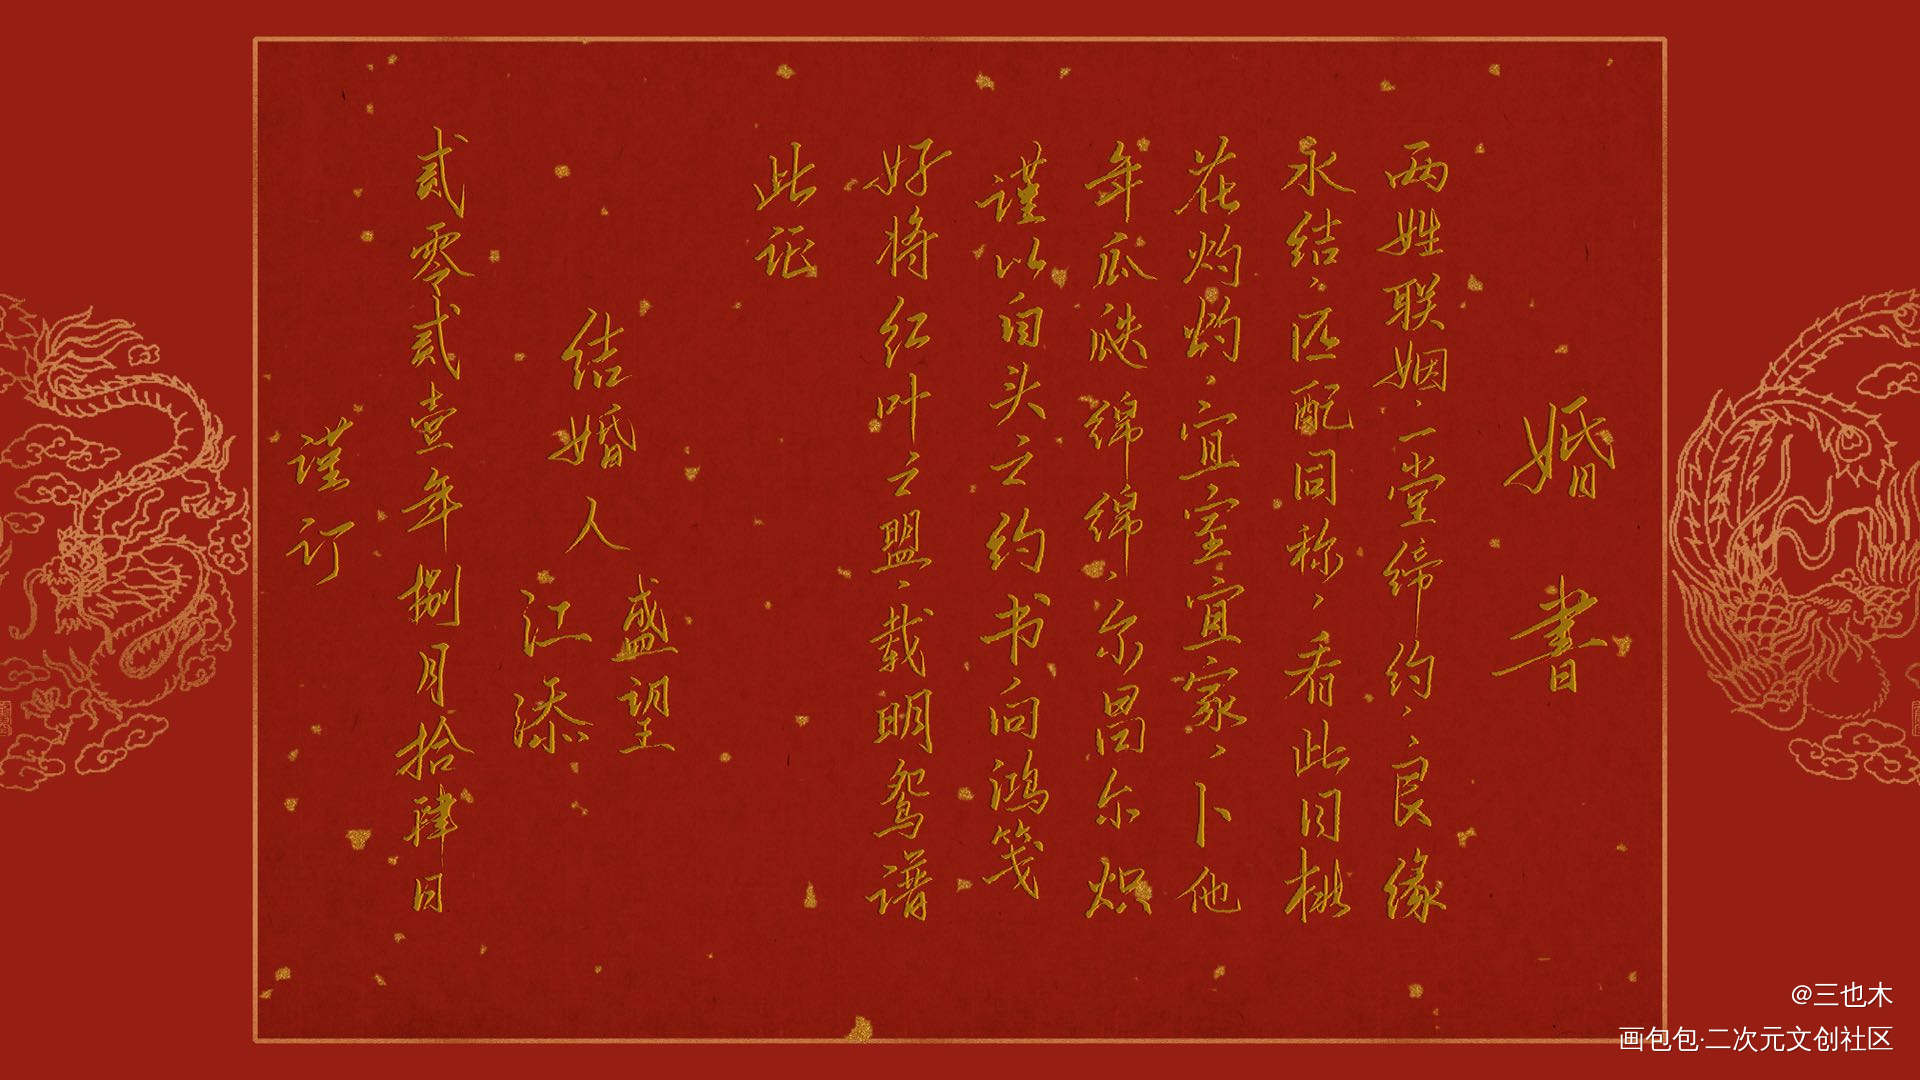 婚书
两姓联姻、一堂缔约、良缘
永结、匹配同称、看此日桃
花灼灼、宜室宜家、卜他
年瓜瓞绵绵、尔昌尔炽
谨以白头之约书向鸿笺
好将红叶之盟、载明鸳谱
此证
结婚人
盛望
江添
贰零贰壹年捌月拾肆日
谨订
@三也木
画包包·二次元文创社区